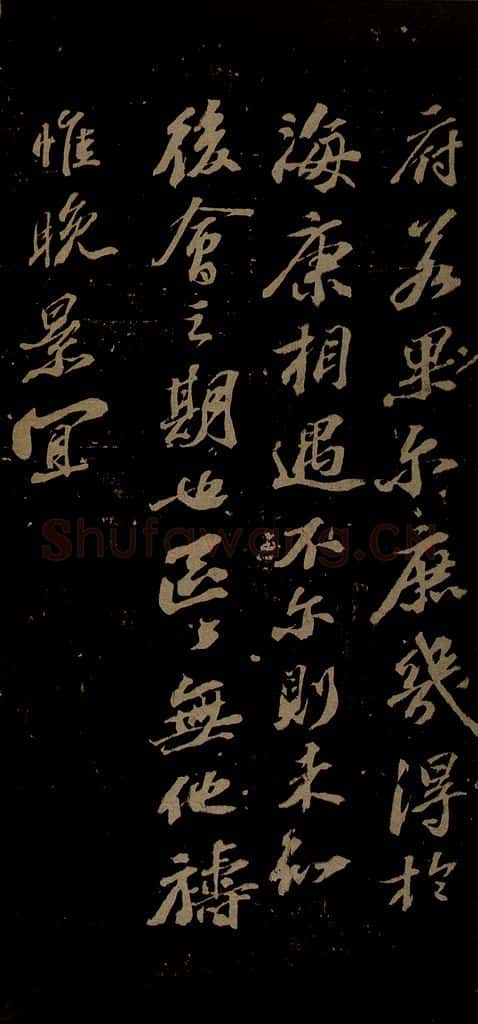 府若果尔庶幾得於
海康相遇不尔則未知
後會之期也區々無他禱
惟晚景宜
Shufawang.cn